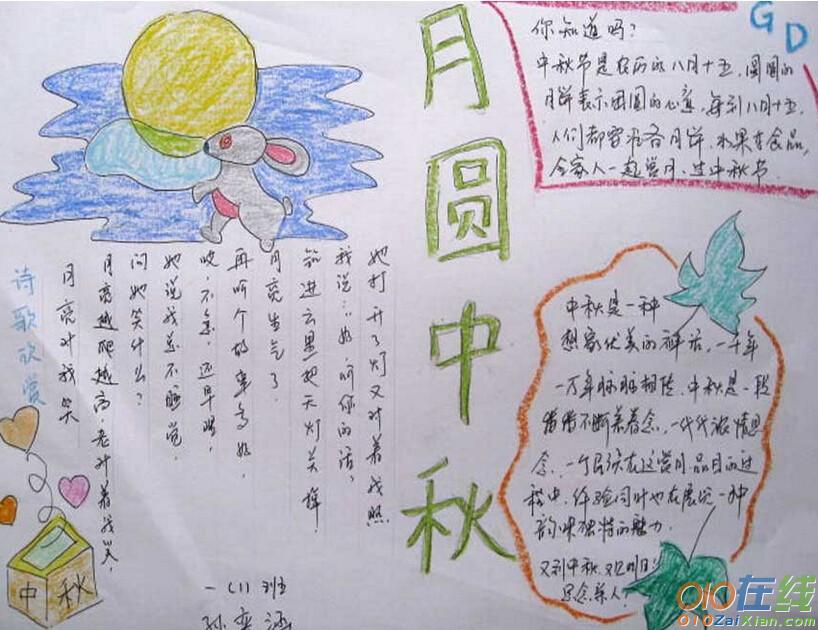 月圆中秋
GD
你知道吗?
中秋节是农历的八月十五,圆圆的
月饼表示团圆的心意,每到八月十五,
人们都要准备月饼、水果等食品,
全家人一起赏月、过中秋节
诗歌欣赏
月亮对我笑
月亮越爬越高,老对着我笑,
问她笑什么?
她说我怎不睡觉,
咳,不急,还早哩,
再听个故事多好,
月亮生气了,
钻进云里把天灯关掉,
我说:好,听你的话,
她打开了灯又对着我照
中秋是一种
想象优美的神话,一千年
一万年脉脉相传,中秋是一段
常常不断
念,一代代浓情思
念,一个民族在这赏月品月的过
程中,体验同时也在展现一种
韵味独特的魅力
又到中秋,又
思念亲人!
中秋
一(1)班
孙奕涵
010在线
010ZaiXian.com